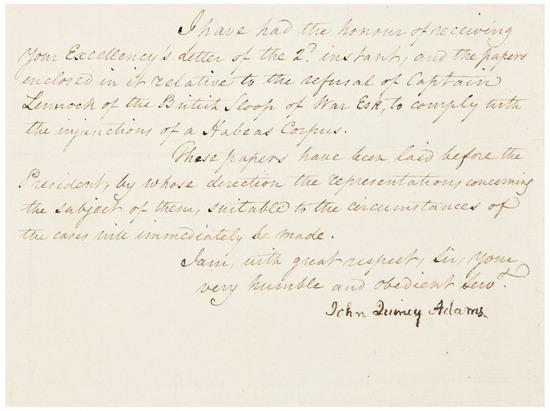 I have had the honour of receiving
Your Excellency's Letter of the 2d. instant, and the papers
enclosed in it relative to the refusal of Captain
Lennock of the British Sloop of War Esk, to comply with
the injunctions of a Habeas Corpus.
These papers have been laid before the
President, by whose direction the representations, concerning
the subject of them, suitable to the circumstances of
the cases will immediately be made.
I am, with great respect, Sir, Your
very humble and obedient Servt.
John Quincy Adams.